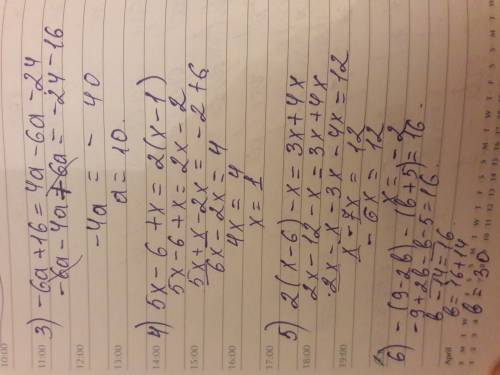 3) -6a+16=4a-6a-24
-6a-4a+6a=-24-16
-4a=-40
a=10.
4) 5x-6+x=2(x-1)
5x-6+x=2x-2
5x+x-2x=-2+6
6x-2x=4
4x=4
x=1
5) 2(x-6)-x=3x+4x
2x-12-x=3x+4x
2x-x-3x-4x=12
x-7x=12
-6x=12
x=-2
6) -(9-2b)-(b+5)=16.
-9+2b-b-5=16.
b-14=16
b=16+14
b=30
10:00
11:00
12:00
13:00
14:00
15:00
16:00
17:00
18:00
19:00
April